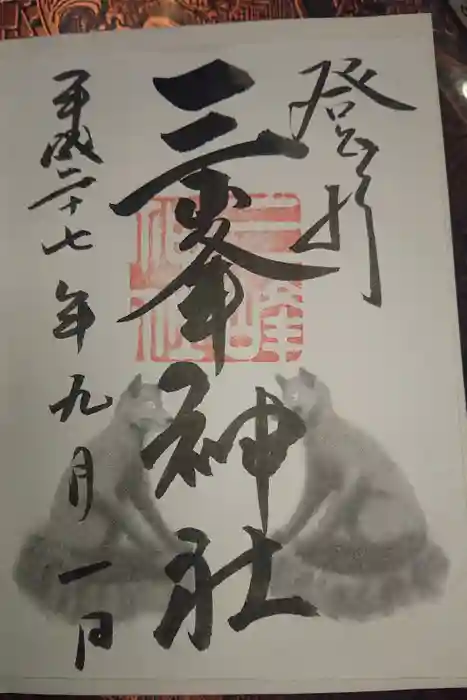 登拝
三峯神社
三峰神社
平成二十七年九月一日